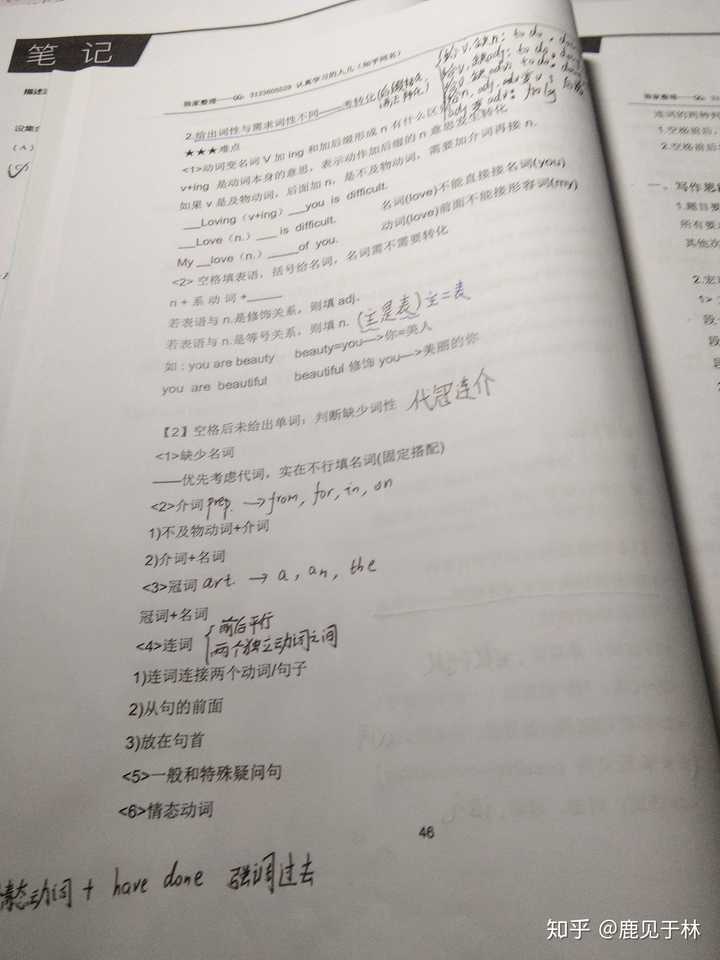 笔记
独家整理——QQ: 3123605029 认真学习的人儿（知乎同名）
2.给出词性与需求词性不同——考转化(后缀转化,语法转化)
给V,缺n: to do,
给V,缺adj: to do,
★★★难点
<1>动词变名词 V 加 ing 和加后缀形成 n 有什么区
v+ing 是动词本身的意思，表示动作如后缀的 n 意思发生转化
如果 v 是及物动词，后面加 n，是不及物动词，需要加介词再接 n.
___Loving（v+ing）___you is difficult.
___Love（n.）___ is difficult. 名词(love)不能直接接名词(you)
My __love（n.）_____of you. 动词(love)前面不能接形容词(my)
<2> 空格填表语，括号给名词，名词需不需要转化
n + 系 动 词 +_____
若表语与 n.是修饰关系，则填 adj.
若表语与 n.是等号关系，则填 n. (主是表) 主=表
如：you are beauty beauty=you—>你=美人
you are beautiful beautiful 修饰 you—>美丽的你
【2】空格后未给出单词：判断缺少词性 代冠连介
<1>缺少名词
——优先考虑代词，实在不行填名词(固定搭配)
<2>介词 prep. → from, for, in, on
1)不及物动词+介词
2)介词+名词
<3>冠词 art. → a, an, the
冠词+名词
<4>连词 { 前后平行
两个独立动词之间
1)连词连接两个动词/句子
2)从句的前面
3)放在句首
<5>一般和特殊疑问句
<6>情态动词
46
情态动词 + have done 强调过去
描述
（A）
一、写作思
1.题目要
所有要
其他次
2.宏
知乎 @鹿见于林